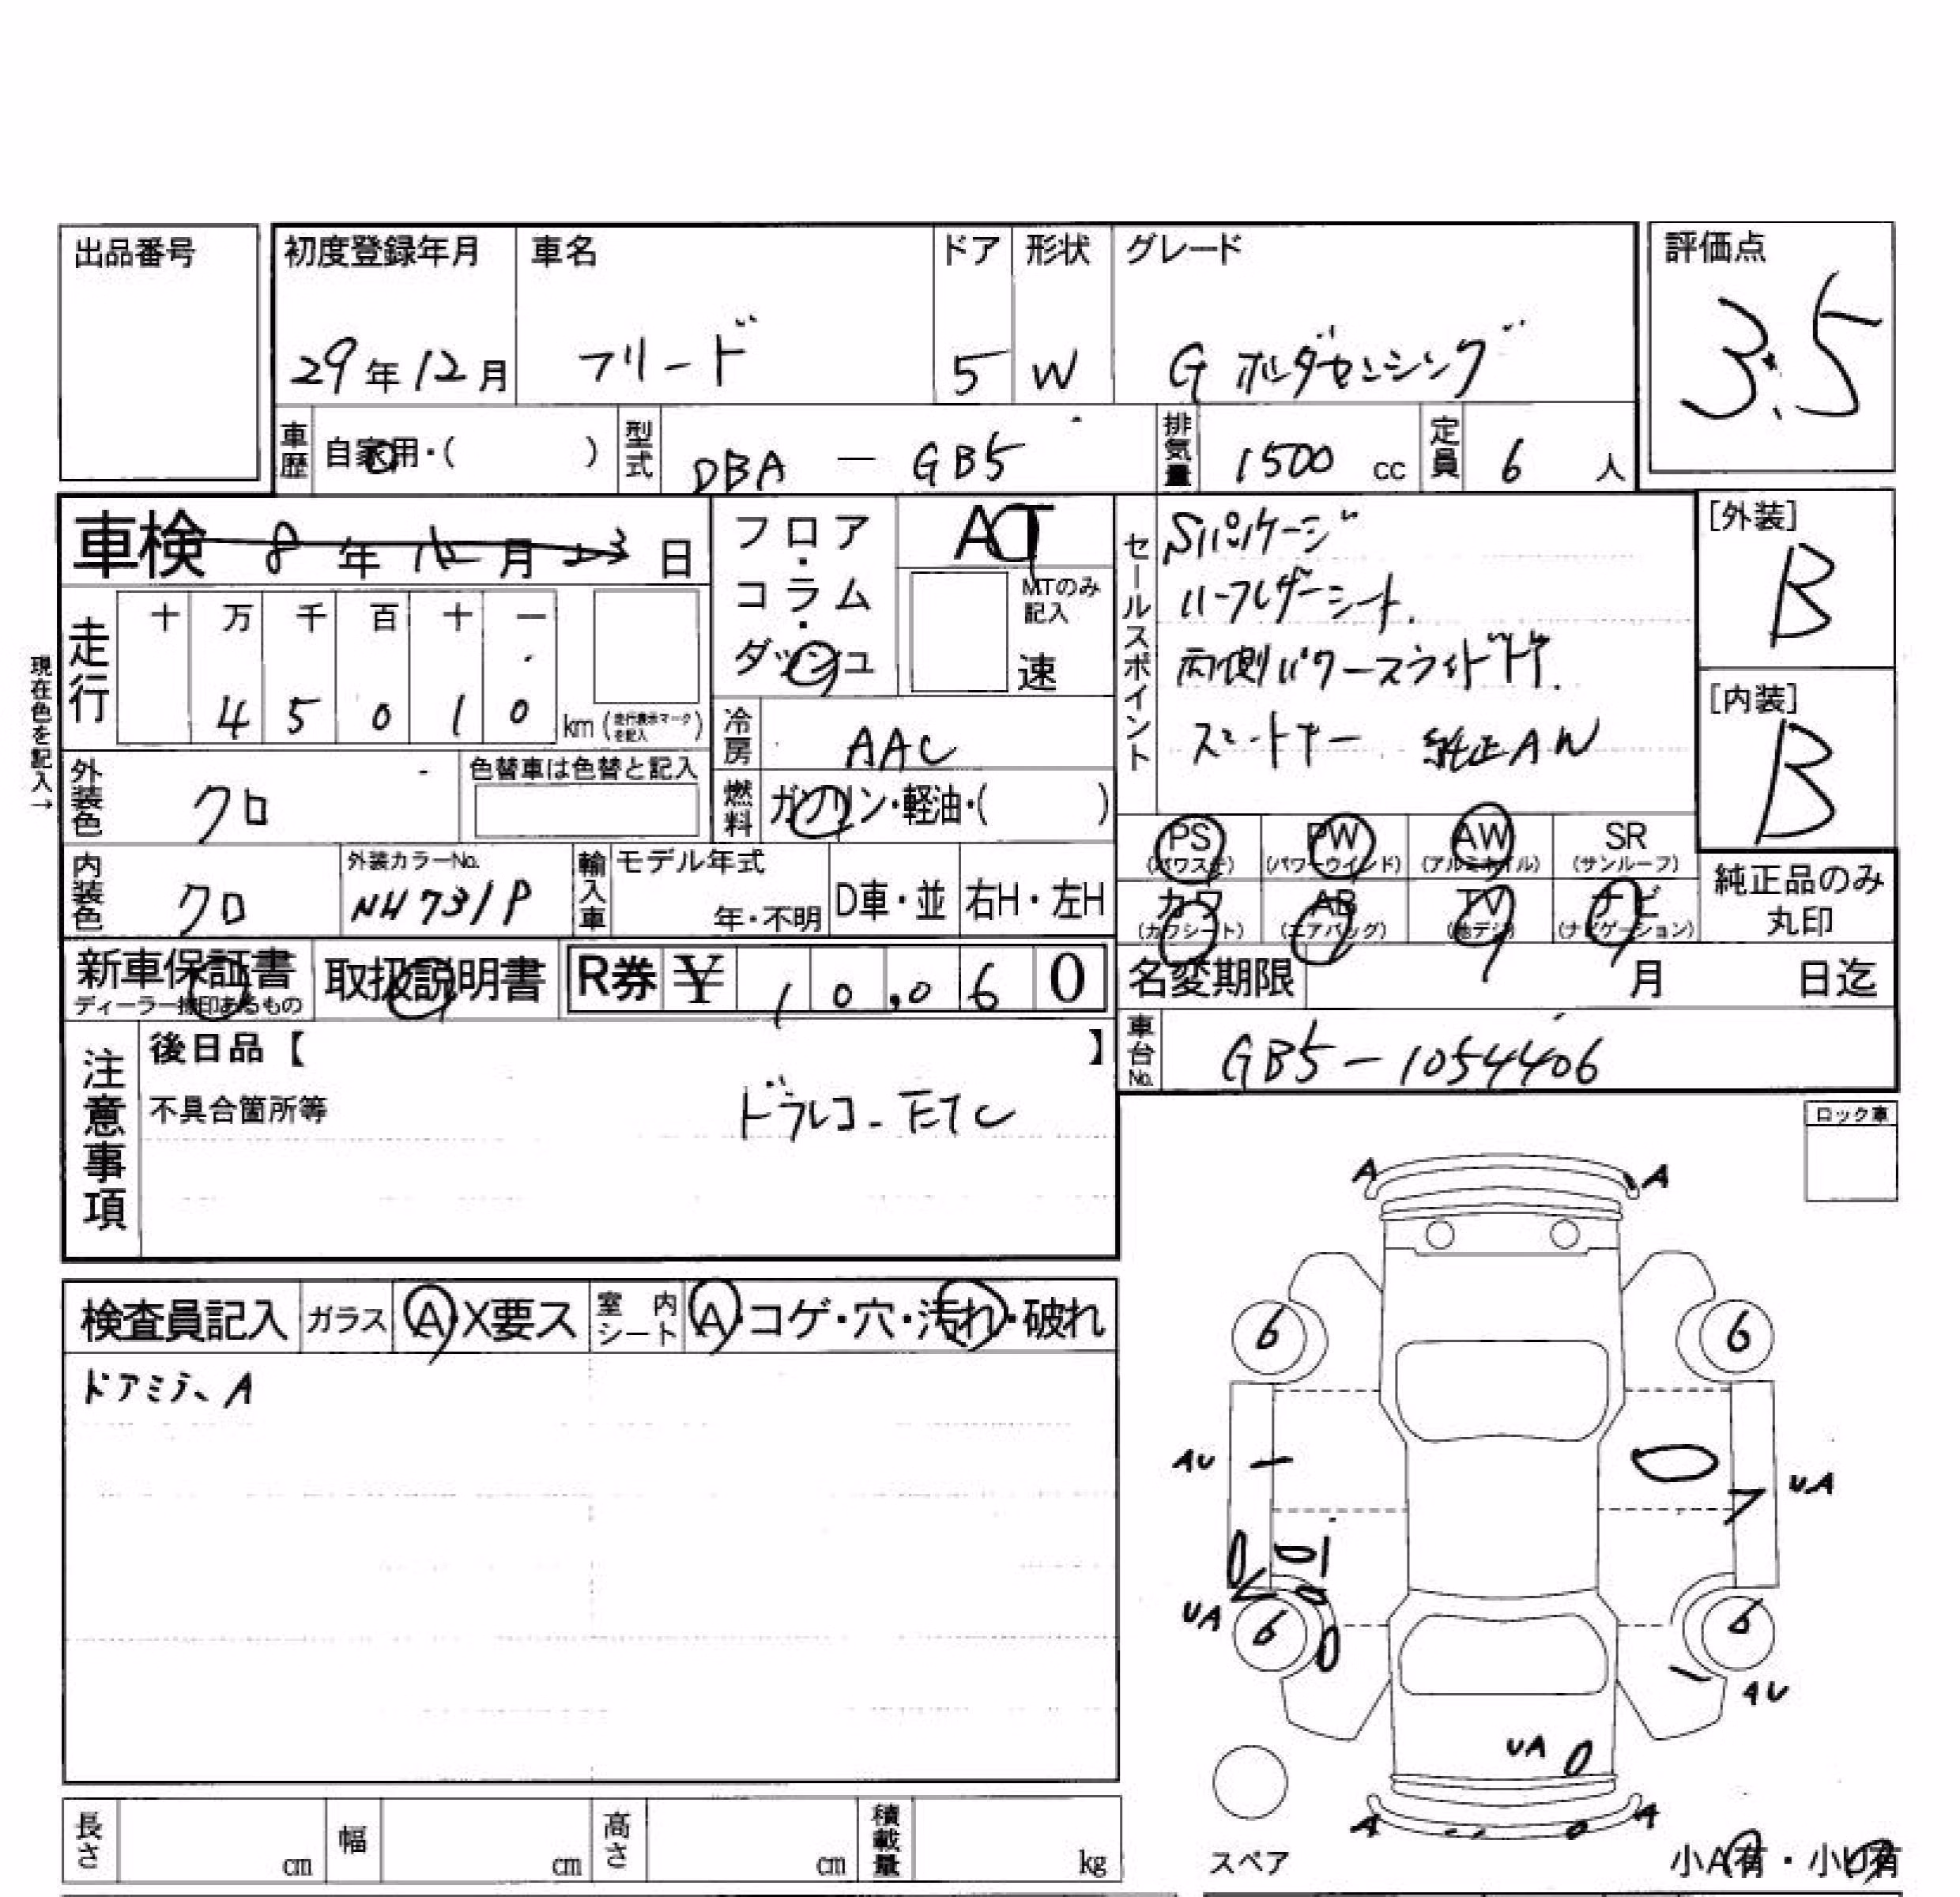 出品番号
初度登録年月 車名 ドア 形状 グレード 評価点
29年12月 フリード 5 W G ホンダセンシング 3.5
車歴 自家用・( ) 型式 DBA — GB5 排気量 1500 cc 定員 6 人
車検 8年12月23日
フロア・コラム・ダッシュ AT
MTのみ記入 速
セールスポイント
Sパッケージ
ハーフレザーシート.
両側パワースライドドア.
スマートキー 純正AW
[外装] B
[内装] B
現在色を記入→
走行 十 万 千 百 十 一
4 5 0 1 0 km (走行表示マークを記入)
冷房 AAC
外装色 クロ 色替車は色替と記入
燃料 ガソリン・軽油・( )
PS (パワステ) PW (パワーウインド) AW (アルミホイル) SR (サンルーフ)
カワ (カワシート) AB (エアバッグ) TV (地デジ) ナビ (ナビゲーション)
純正品のみ丸印
内装色 クロ 外装カラーNo. NH731P 輸入車 モデル年式 年・不明 D車・並 右H・左H
新車保証書 ディーラー捺印あるもの 取扱説明書 R券 ¥ 10,060
名変期限 月 日迄
車台No. GB5-1054406
注意事項
後日品【 】
不具合箇所等
ドラレコ-ETC
ロック車
A A
検査員記入 ガラス A・X要ス 室内シート A・コゲ・穴・汚れ・破れ
ドアミラー、A
6 6
AU UA
UA 6 6
AU
UA
A A
スペア
小A有・小U有
長さ cm 幅 cm 高さ cm 積載量 kg